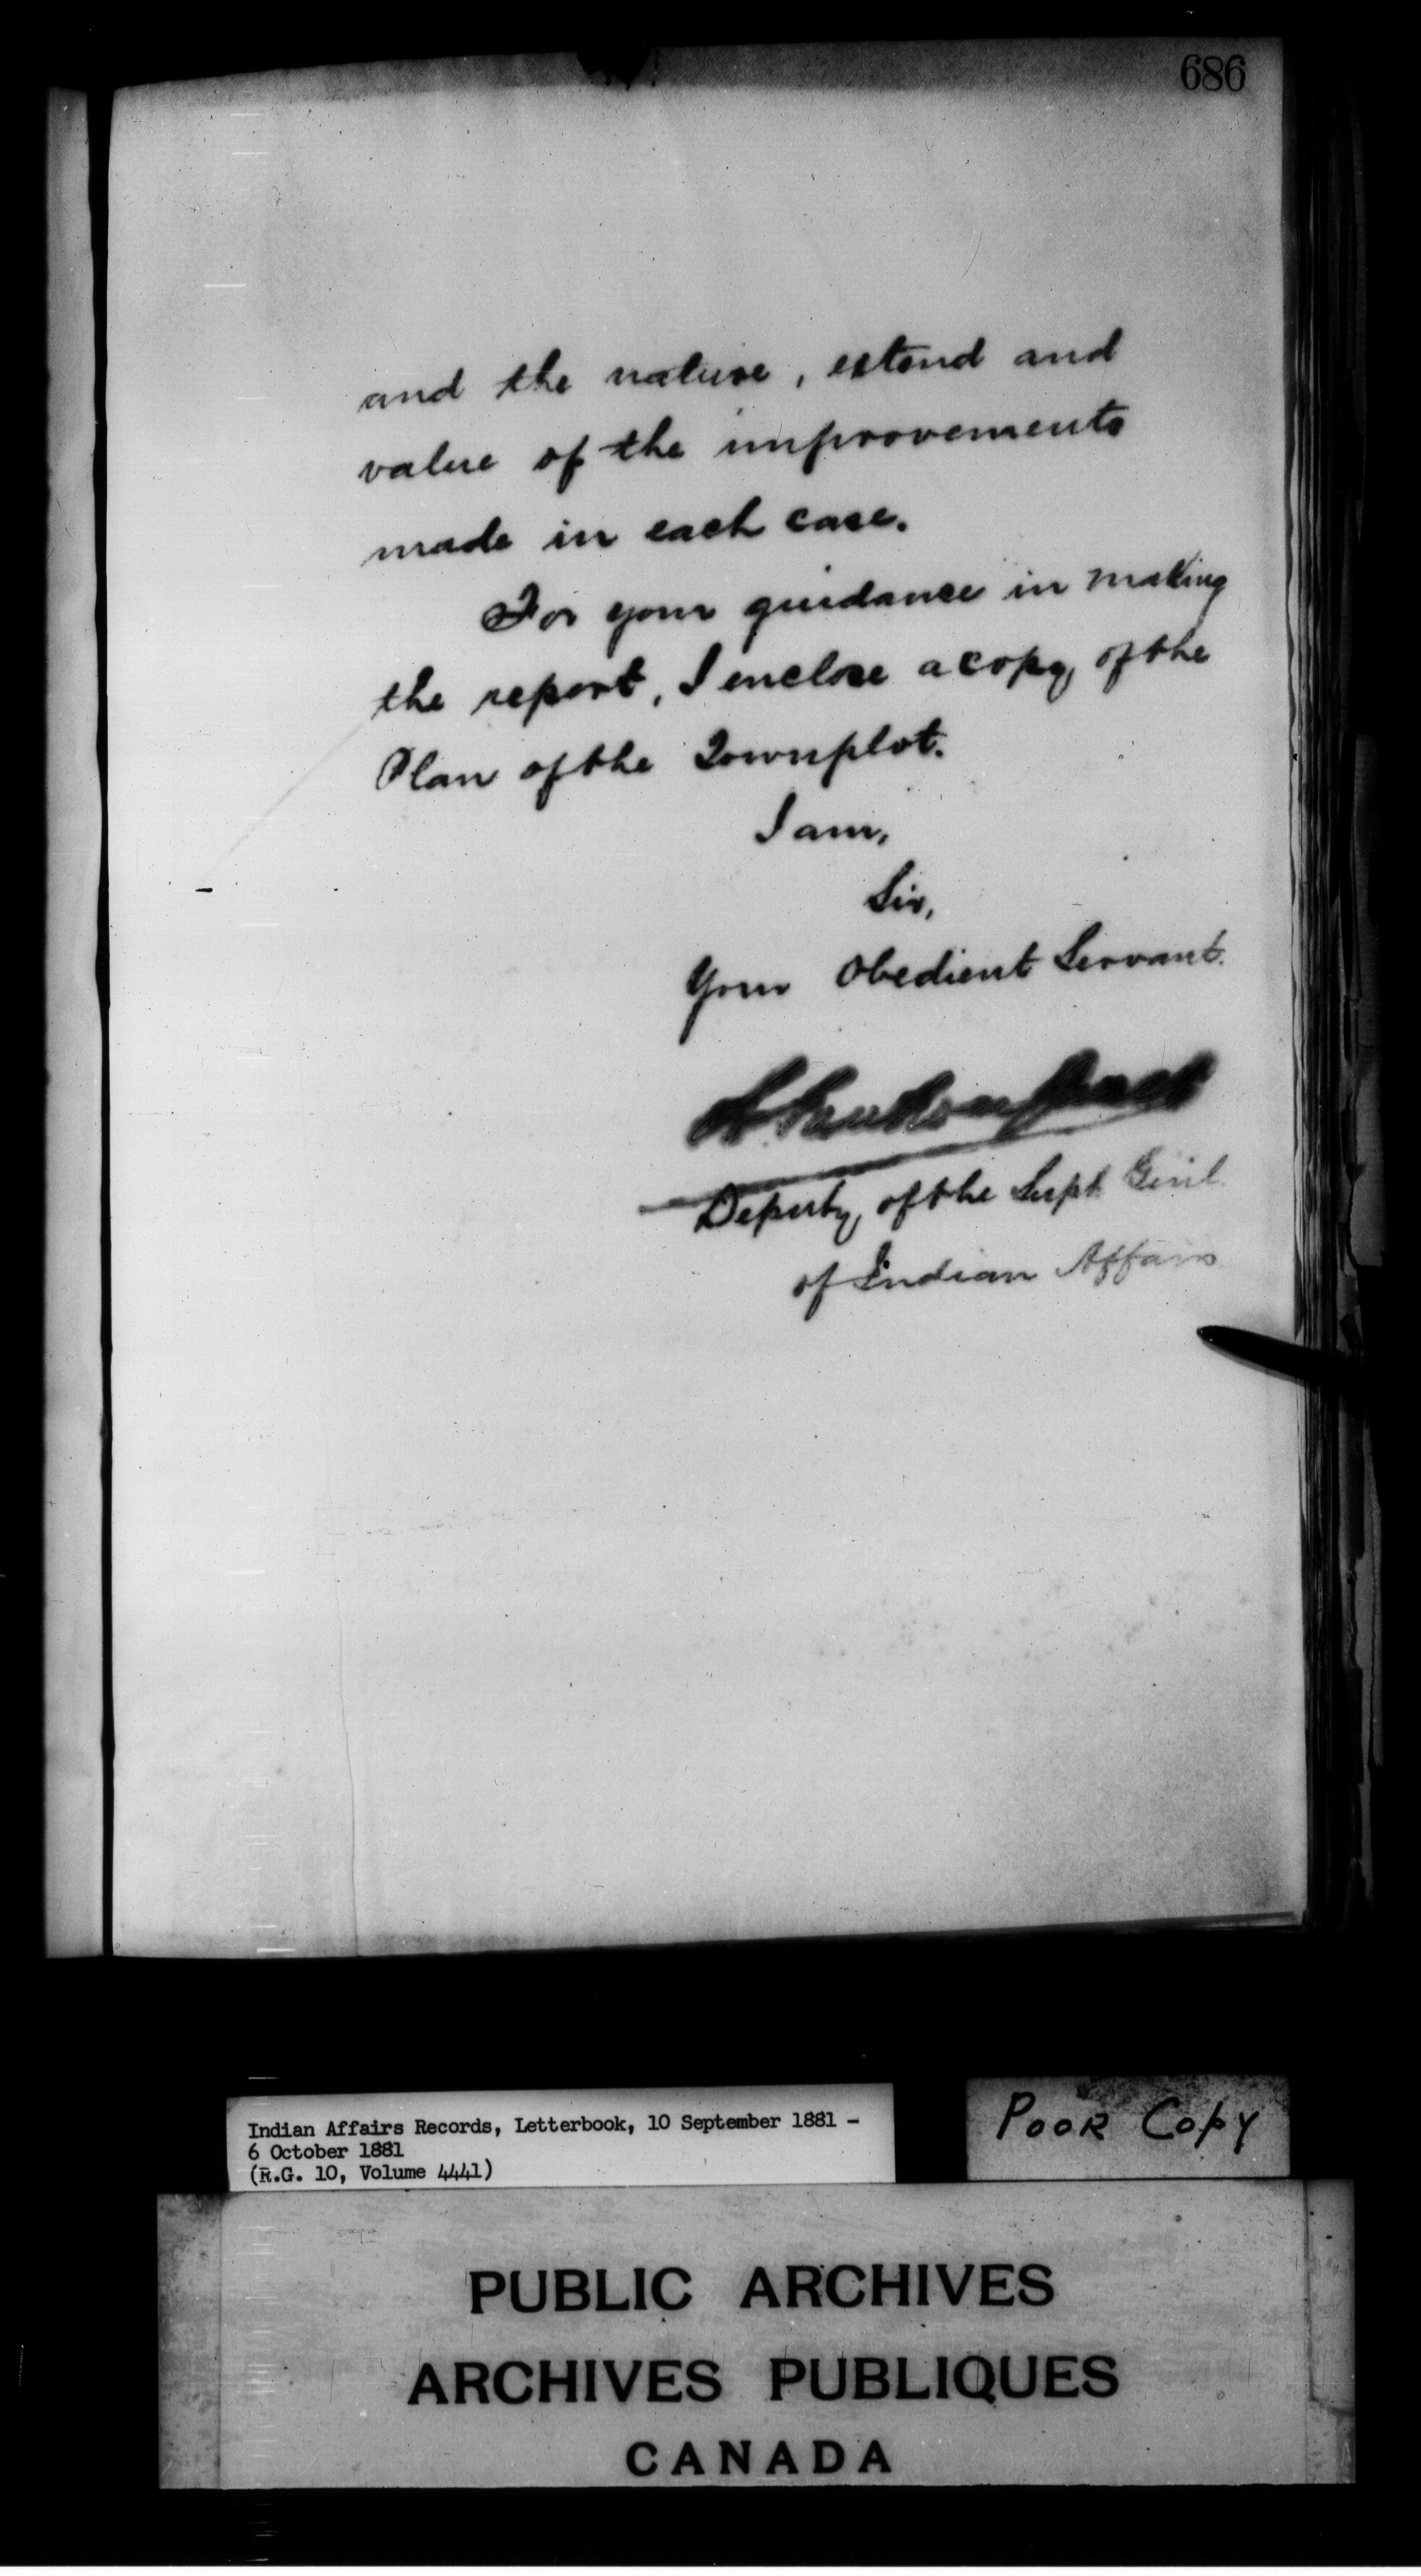 686
and the nature, extend and
value of the improvements
made in each case.
For your guidance in making
the report, I enclose a copy of the
Plan of the Townplot.
I am,
Sir,
Your Obedient Servant.
Deputy of the Supt Genl
of Indian Affairs
Indian Affairs Records, Letterbook, 10 September 1881 -
6 October 1881
(R.G. 10, Volume 4441)
POOR COPY
PUBLIC ARCHIVES
ARCHIVES PUBLIQUES
CANADA